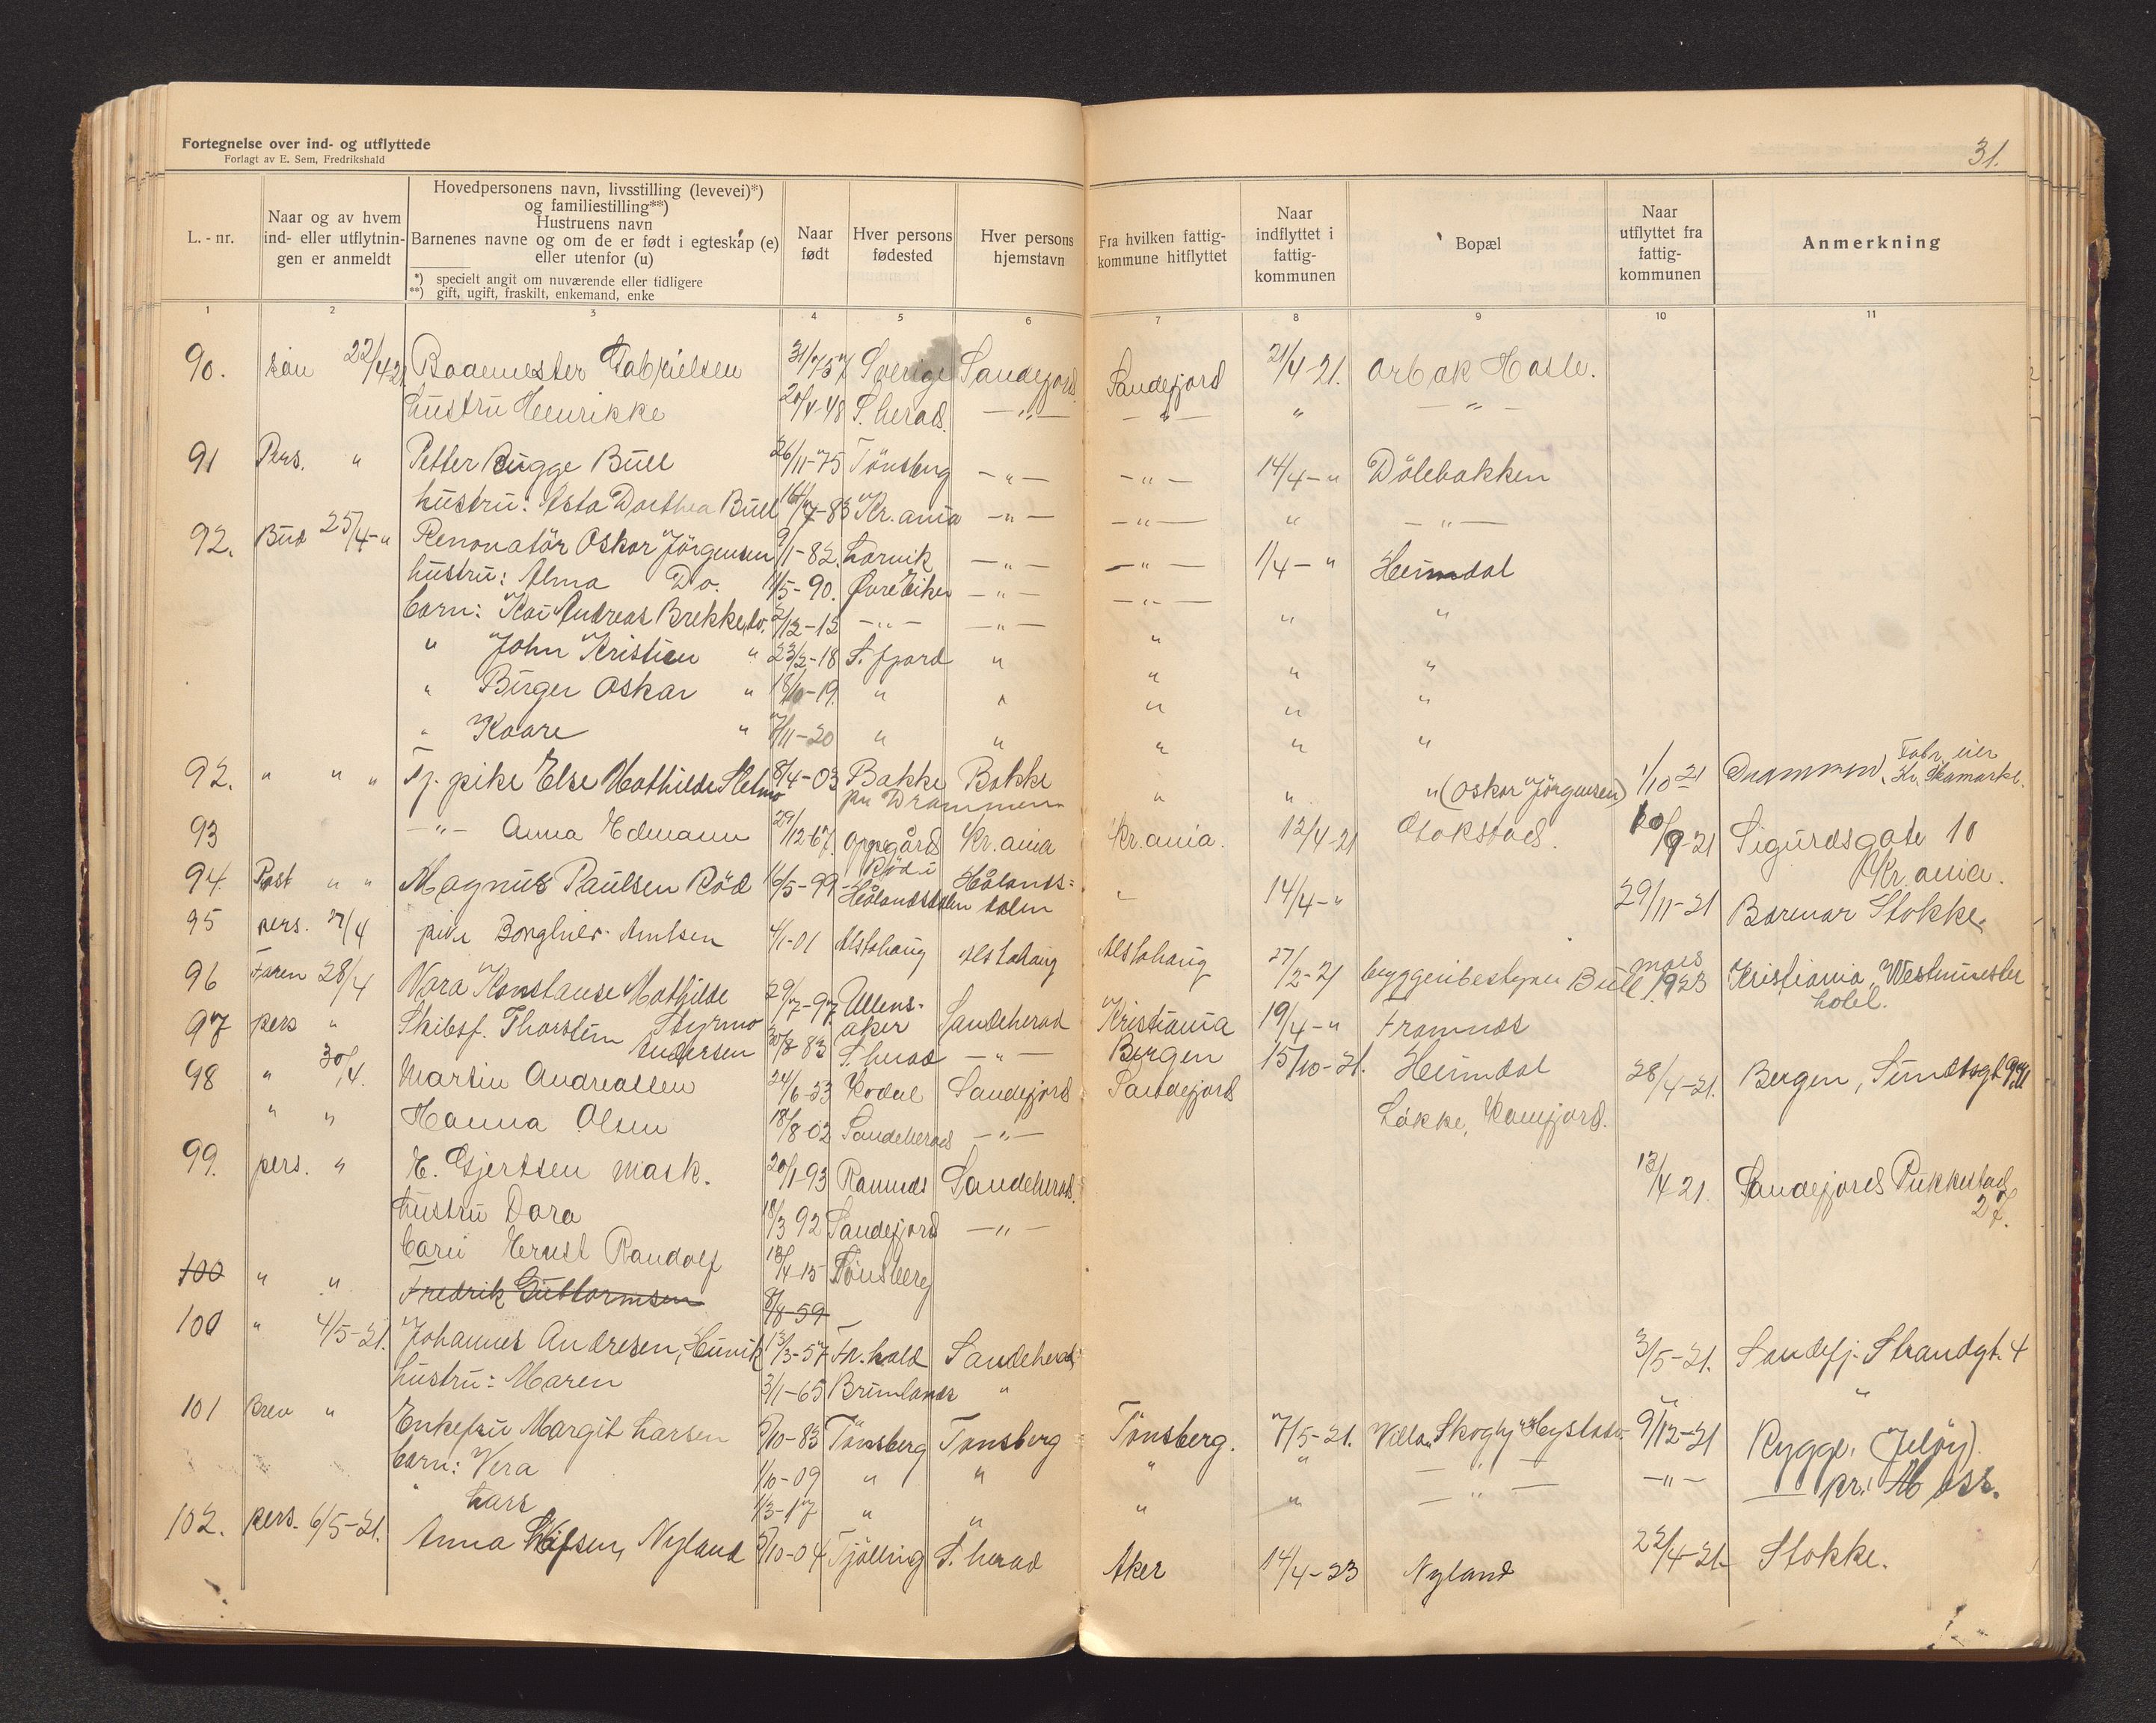 Fortegnelse over ind- og utflyttede
Forlagt av E. Sem, Fredrikshald
31.
L.-nr.
Naar og av hvem ind- eller utflytnin-gen er anmeldt
Hovedpersonens navn, livsstilling (levevei)*)
og familiestilling**)
Hustruens navn
Barnenes navne og om de er født i egteskap (e)
eller utenfor (u)
*) specielt angit om nuværende eller tidligere
**) gift, ugift, fraskilt, enkemand, enke
Naar født
Hver persons fødested
Hver persons hjemstavn
Fra hvilken fattig-kommune hitflyttet
Naar indflyttet i fattig-kommunen
Bopæl
Naar utflyttet fra fattig-kommunen
Anmerkning
1 2 3 4 5 6 7 8 9 10 11
90. 22/4 21 Gabrielsen Sverige Sandefjord Sandefjord 21/4-21. Hasle.
hustru Henrikke 20/4-48 S. herad. —"— —"— " —"—
91 Pers. " Petter Bugge Bull 26/11-75 Tönsberg —"— —"— 14/4-" Dölebakken
hustru: Asta Dorthea Bull 16/7-83 Kr.ania —"— —"— " —"—
92. Bud 25/4-" Renovatör Oskar Jörgensen 9/1-82. Larvik —"— —"— 1/4-" Heimdal
hustru: Alma Do. 11/5-90. Øvre Eiker —"— —"— " "
barn: Kai Andreas Brekke, do. 2/12-15 —"— —"— "
" John Kristian " 23/2-18 S. fjord " " " "
" Birger Oskar " 18/10-19. " " " " "
" Kaare " 7/11-20 " " " " "
92. " " " Tj. pike Else Mathilde 8/4-03 Bakke Bakke " " " (Oskar Jörgensen) 1/10 21 Drammen, Fabr. eier
pr. Drammen
93 —"— Anna Edmann 29/12-67. Oppgård Kr.ania Kr.ania. 12/4-21 20/9-21 Sigurdsgate 10
Kr.ania.
94. Post " " Magnus Paulsen Röd 16/5-99 Röd i Hålandsdalen Hålands=dalen 14/4-" 29/11-21 Stokke.
95 pers. 27/4 pike Borghild Arntsen 4/1-01 Alstahaug Alstahaug Alstahaug 27/2-21 Bull mars 1923 Kristiania, Westminster hotel.
96 28/4 Nora Konstanse Mathilde Styrmo 29/7-97. Ullens-aker Sandeherad Kristiania 19/4-" Framnæs
97 pers " Skibsf. Thorstein Andersen 30/8 83 S. herad —"— Bergen 15/10-21. Heimdal 28/4-21. Bergen,
98 " 30/4. Martin Andreassen 24/6-53 Kodal Sandefjord Sandefjord Lökke, Kamfjord.
" " Hanna Olsen 18/8-02 Sandeherad —"—
99. pers. " E. Gjertsen mask. 20/1-93 Ramnes Sandeherad. 13/4 21. Sandefjord Pukkestad 27.
hustru Dora 18/3 92 Sandefjord —"—
barn Ernst Randolf 13/4-15 Tönsberg
100 " " Fredrik Guttormsen 8/8-59
100 " 4/5-21. Johannes Andresen, Hunik 13/3-57 Fr.hald Sandeherad 3/5-21. Sandefj. Strandgt. 4
hustru: Maren 3/1-65 Brunlanes " "
101 Brev " Enkefru Margit Larsen 5/10-83 Tönsberg Tönsberg Tönsberg. 7/5-21. Villa "Skogly" Hystad 9/12-21 Rygge. (Jelöy).
barn: Vera 1/10-09 " " " " —"— —"— pr. Moss.
" Lars 1/3-17 " " " " —"—
102. pers. 6/5-21. Anna Nyland 5/10-04 Tjölling S. herad Aker 14/4-23 Nyland 22/4-21 Stokke.